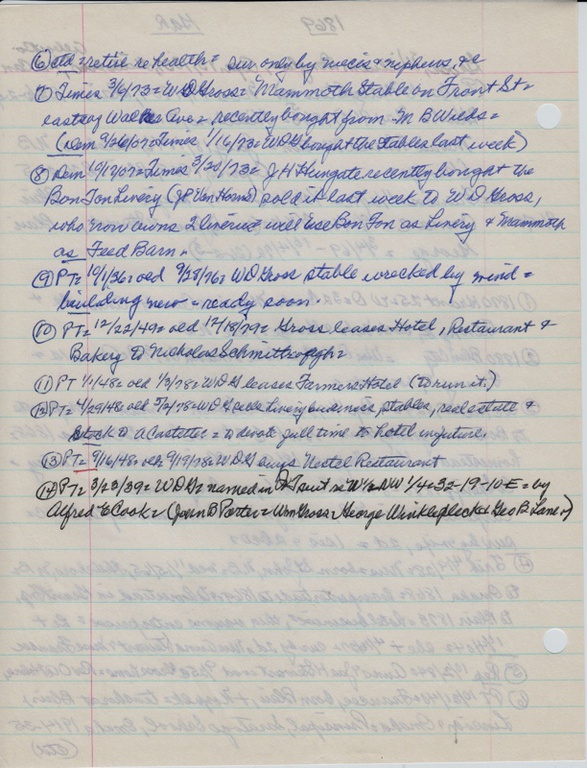 ⑥ ctd = retire re health = sur only by nieces & nephews, etc
⑦ Times 3/6/73 = W D Gross = Mammoth Stable on Front St =
east of Walkers Ave = recently bought from M B Wilds =
(Dem 9/26/07 = Times 1/16/73 = WDG bought the stables last week)
⑧ Dem 10/17/07 = Times 3/20/73 = J H Hungate recently bought the
Bon Ton Livery (J P Van Horns) sold it last week to W D Gross,
who now owns 2 liveries = will use Bon Ton as Livery & Mammoth
as Feed Barn.
⑨ PT = 10/1/36 = oed 9/28/76 = WD Gross stable wrecked by wind =
building new = ready soon.
⑩ PT = 12/22/49 = oed 12/18/79 = Gross leases Hotel, Restaurant &
Bakery to Nicholas
⑪ PT 1/1/48 = oed 1/3/78 = WDG leases Farmers Hotel (to run it.)
⑫ PT = 4/29/48 = oed 5/2/78 = WDG sells Livery business, stables, real estate &
stock to A Castetter = to devote full time to hotel in future.
⑬ PT = 9/16/48 = oed 9/19/78 = WDG buys Restaurant
⑭ PT = 3/23/39 = WDG = named in suit = W½ NW 1/4 = 32-19-10-E = by
Alfred E Cook = (John B Porter = Wm Gross = George Winkleplecks Geo B Lane =)